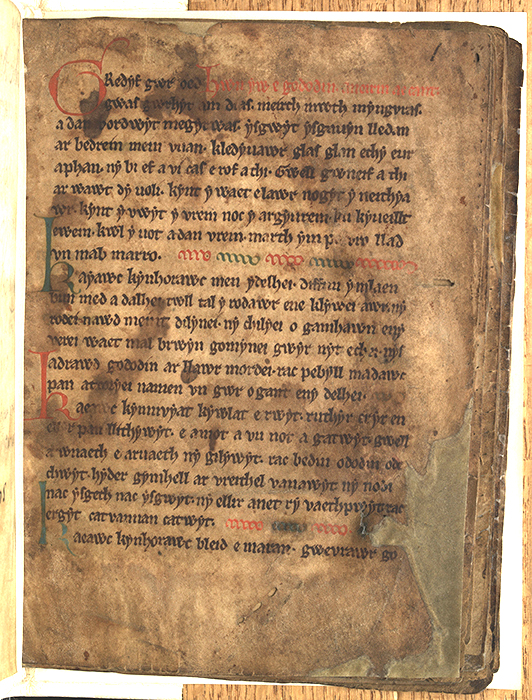 Gredyf gwr oed Hwn yw e gododin. aneirin ae cant.
gwas gwrhyt am dias. meirch mwth myngvras.
a dan vordwyt megyr was. ysgwyt ysgauyn lledan
ar bedrein mein vuan. kledyuawr glas glan ethy eur
aphan. ny bi ef a vi cas e rof a thi. Gwell gwneif a thi
ar wawt dy uoli. kynt y waet elawr nogyt y neithya
wr. kynt y vwyt y vrein noc y argyurein. ku kyueillt
ewein. kwl y uot a dan vrein. marth ym pa vro llad
vn mab marro.
Kayawc kynhorawc men ydelhei. diffun ymlaen
bun med a dalhei. twll tal y rodawr ene klywei awr. ny
rodei nawd meint dilynei. ny chilyei o gamhawn eny
verei waet mal brwyn gomynei gwyr nyt echei. nys
adrawd gododin ar llawr mordei. rac pebyll madawc
pan atcoryei namen vn gwr o gant eny delhei.
Kaeawc kynnivyat kywlat e rwyt. ruthyr eryr en
ebyr pan llithywyt. e amot a vu not a gatwyt. gwell
a wnaeth e aruaeth ny gilywyt. rac bedin ododin ode
chwyt. hyder gymhell ar vreithel vanawyt. ny nodi
nac ysgeth nac ysgwyt. ny ellir anet ry vaethpwyt rac
ergyt catvannan catwyt.
Kaeawc kynhorawc bleid e maran. gwevrawr go